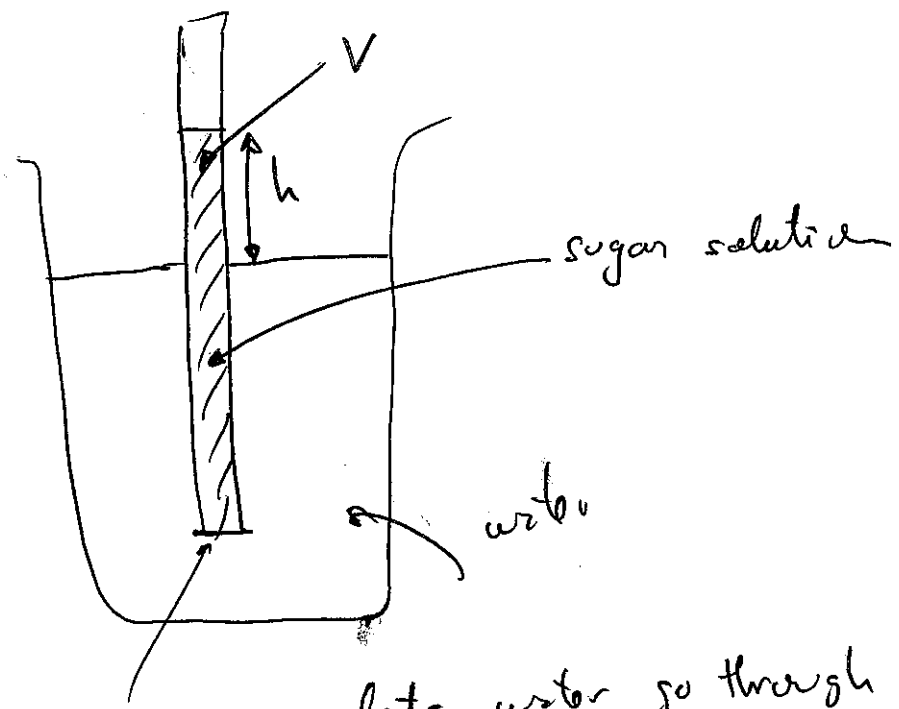 V
h
sugar solution
water
lets water go through